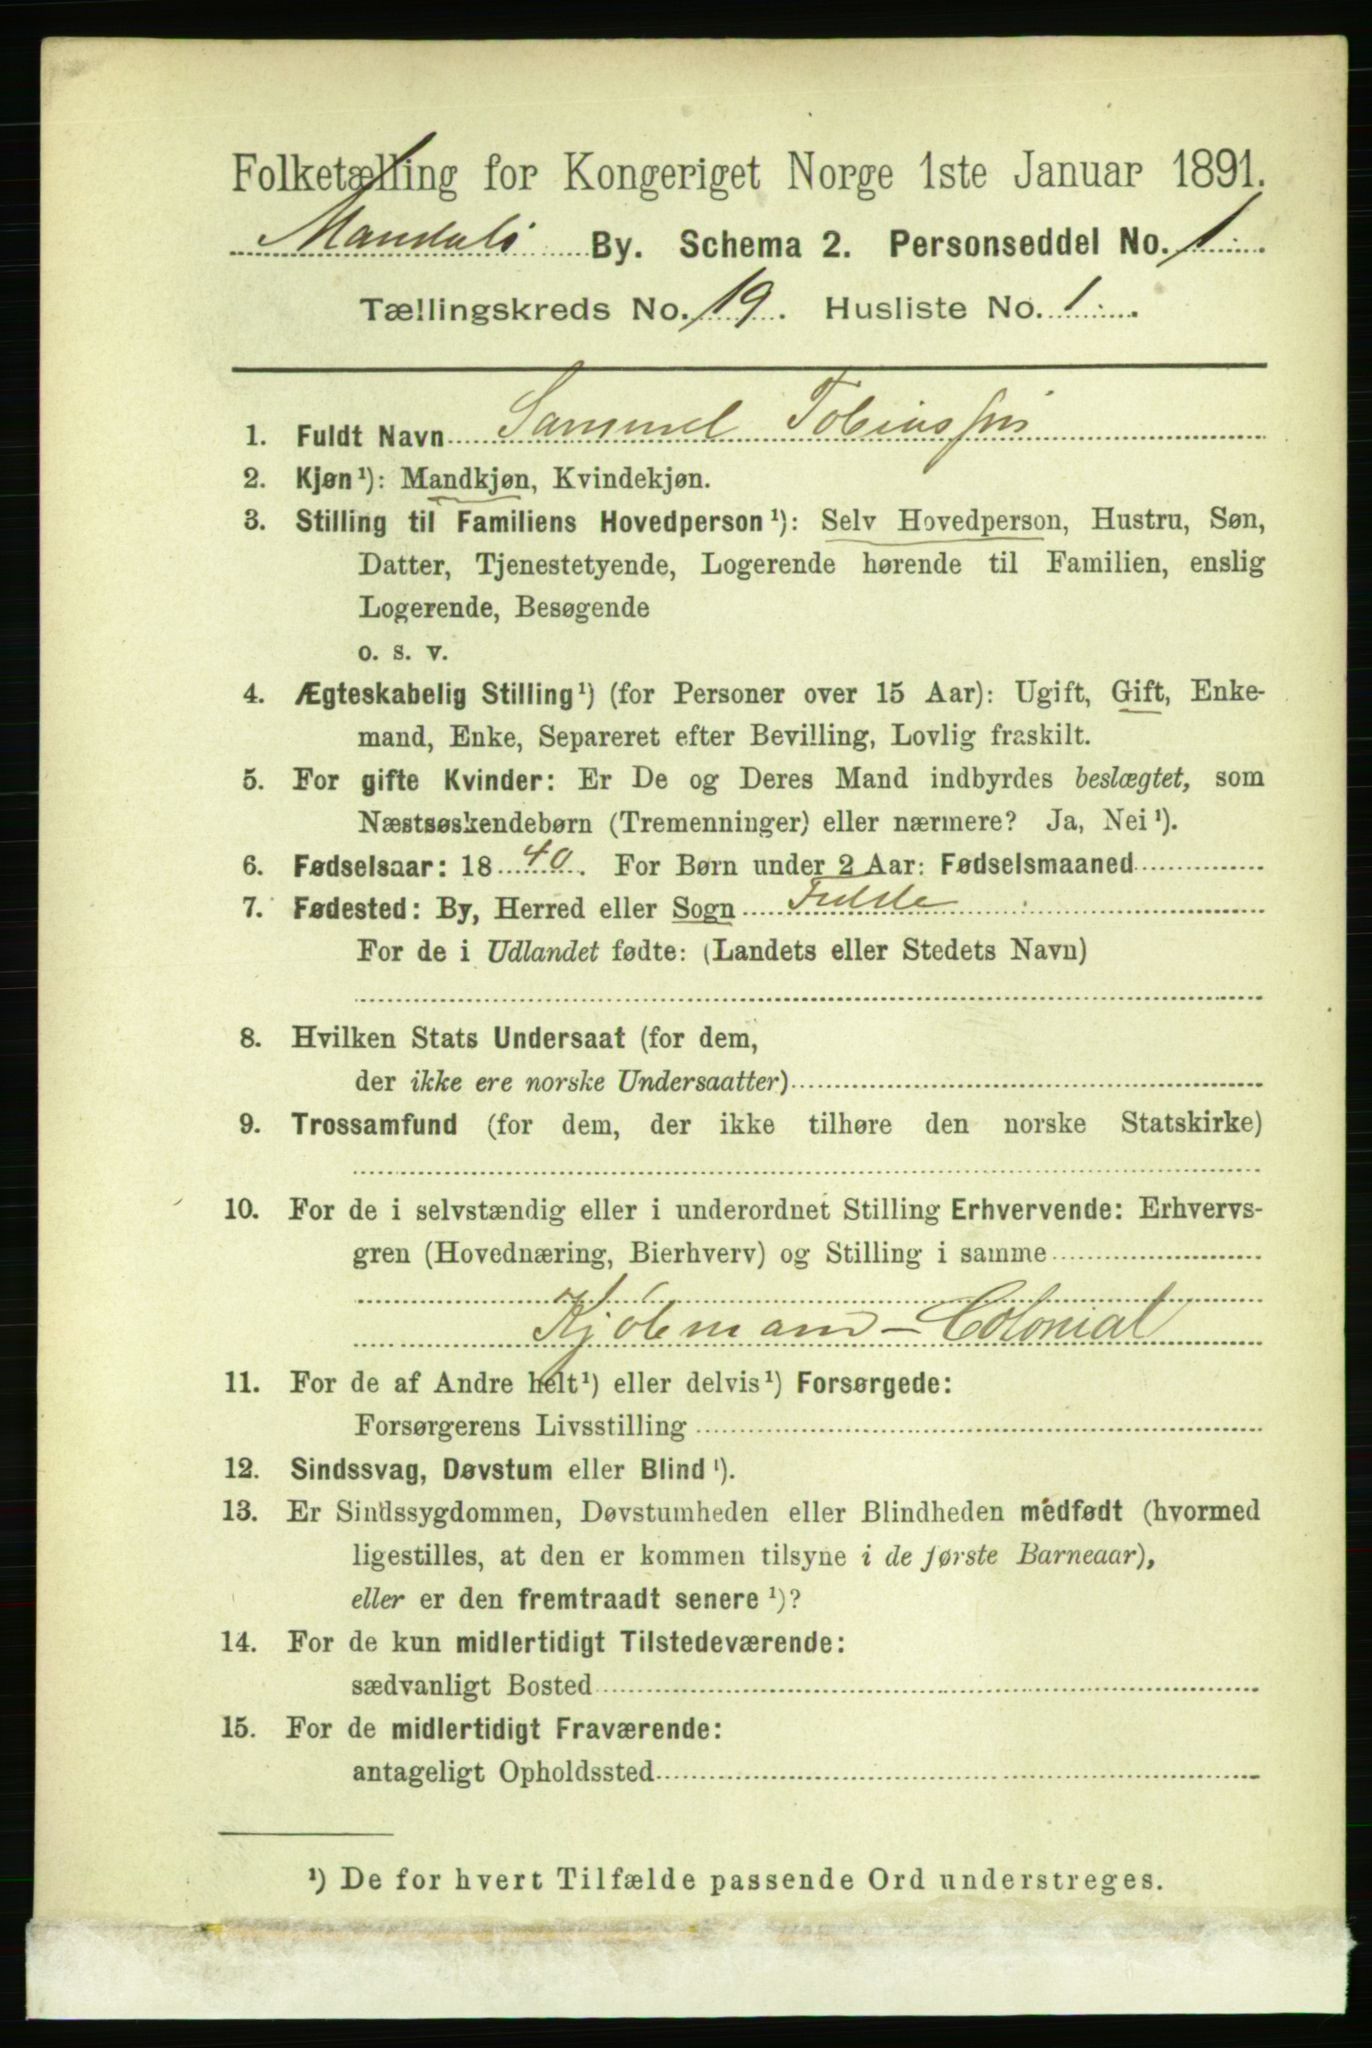 Folketælling for Kongeriget Norge 1ste Januar 1891.
Mandals By. Schema 2. Personseddel No. 1
Tællingskreds No. 19. Husliste No. 1.
1. Fuldt Navn Sammuel Tobiassen
2. Kjøn¹): Mandkjøn, Kvindekjøn.
3. Stilling til Familiens Hovedperson¹): Selv Hovedperson, Hustru, Søn,
Datter, Tjenestetyende, Logerende hørende til Familien, enslig
Logerende, Besøgende
o. s. v.
4. Ægteskabelig Stilling¹) (for Personer over 15 Aar): Ugift, Gift, Enke-
mand, Enke, Separeret efter Bevilling, Lovlig fraskilt.
5. For gifte Kvinder: Er De og Deres Mand indbyrdes beslægtet, som
Næstsøskendebørn (Tremenninger) eller nærmere? Ja, Nei¹).
6. Fødselsaar: 1840. For Børn under 2 Aar: Fødselsmaaned
7. Fødested: By, Herred eller Sogn
For de i Udlandet fødte: (Landets eller Stedets Navn)
8. Hvilken Stats Undersaat (for dem,
der ikke ere norske Undersaatter)
9. Trossamfund (for dem, der ikke tilhøre den norske Statskirke)
10. For de i selvstændig eller i underordnet Stilling Erhvervende: Erhvervs-
gren (Hovednæring, Bierhverv) og Stilling i samme
Kjøbmand - Colonial
11. For de af Andre helt¹) eller delvis¹) Forsørgede:
Forsørgerens Livsstilling
12. Sindssvag, Døvstum eller Blind¹).
13. Er Sindssygdommen, Døvstumheden eller Blindheden medfødt (hvormed
ligestilles, at den er kommen tilsyne i de første Barneaar),
eller er den fremtraadt senere¹)?
14. For de kun midlertidigt Tilstedeværende:
sædvanligt Bosted
15. For de midlertidigt Fraværende:
antageligt Opholdssted
¹) De for hvert Tilfælde passende Ord understreges.